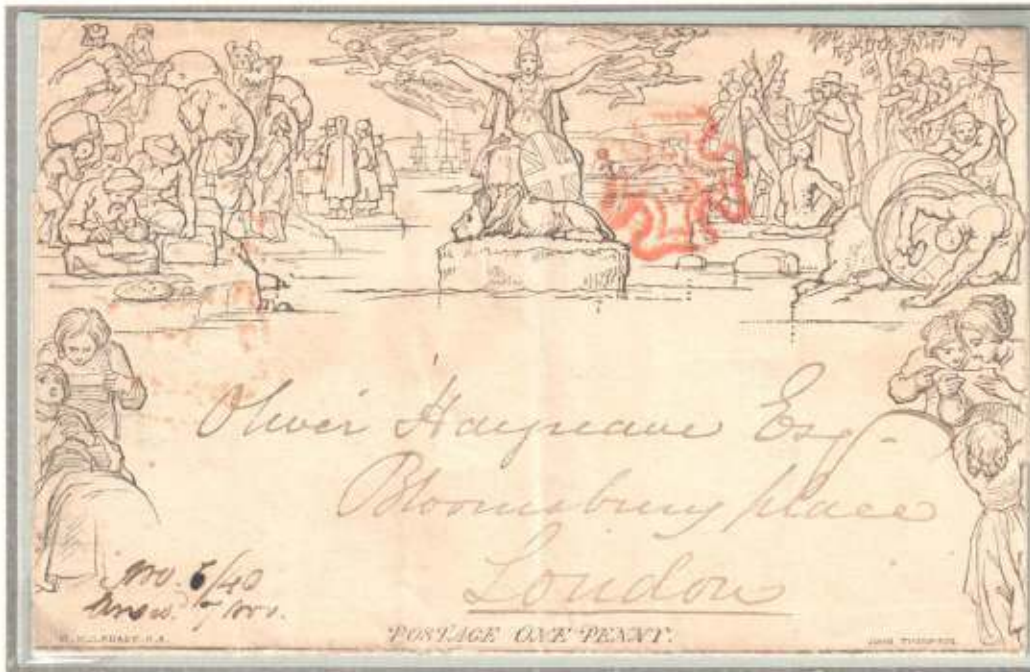 Oliver Haygreave Esq.
Bloomsbury place
London
Nov. 6/40
Answd. 7 Nov.
W. MULREADY. R.A.
POSTAGE ONE PENNY.
JOHN THOMPSON.